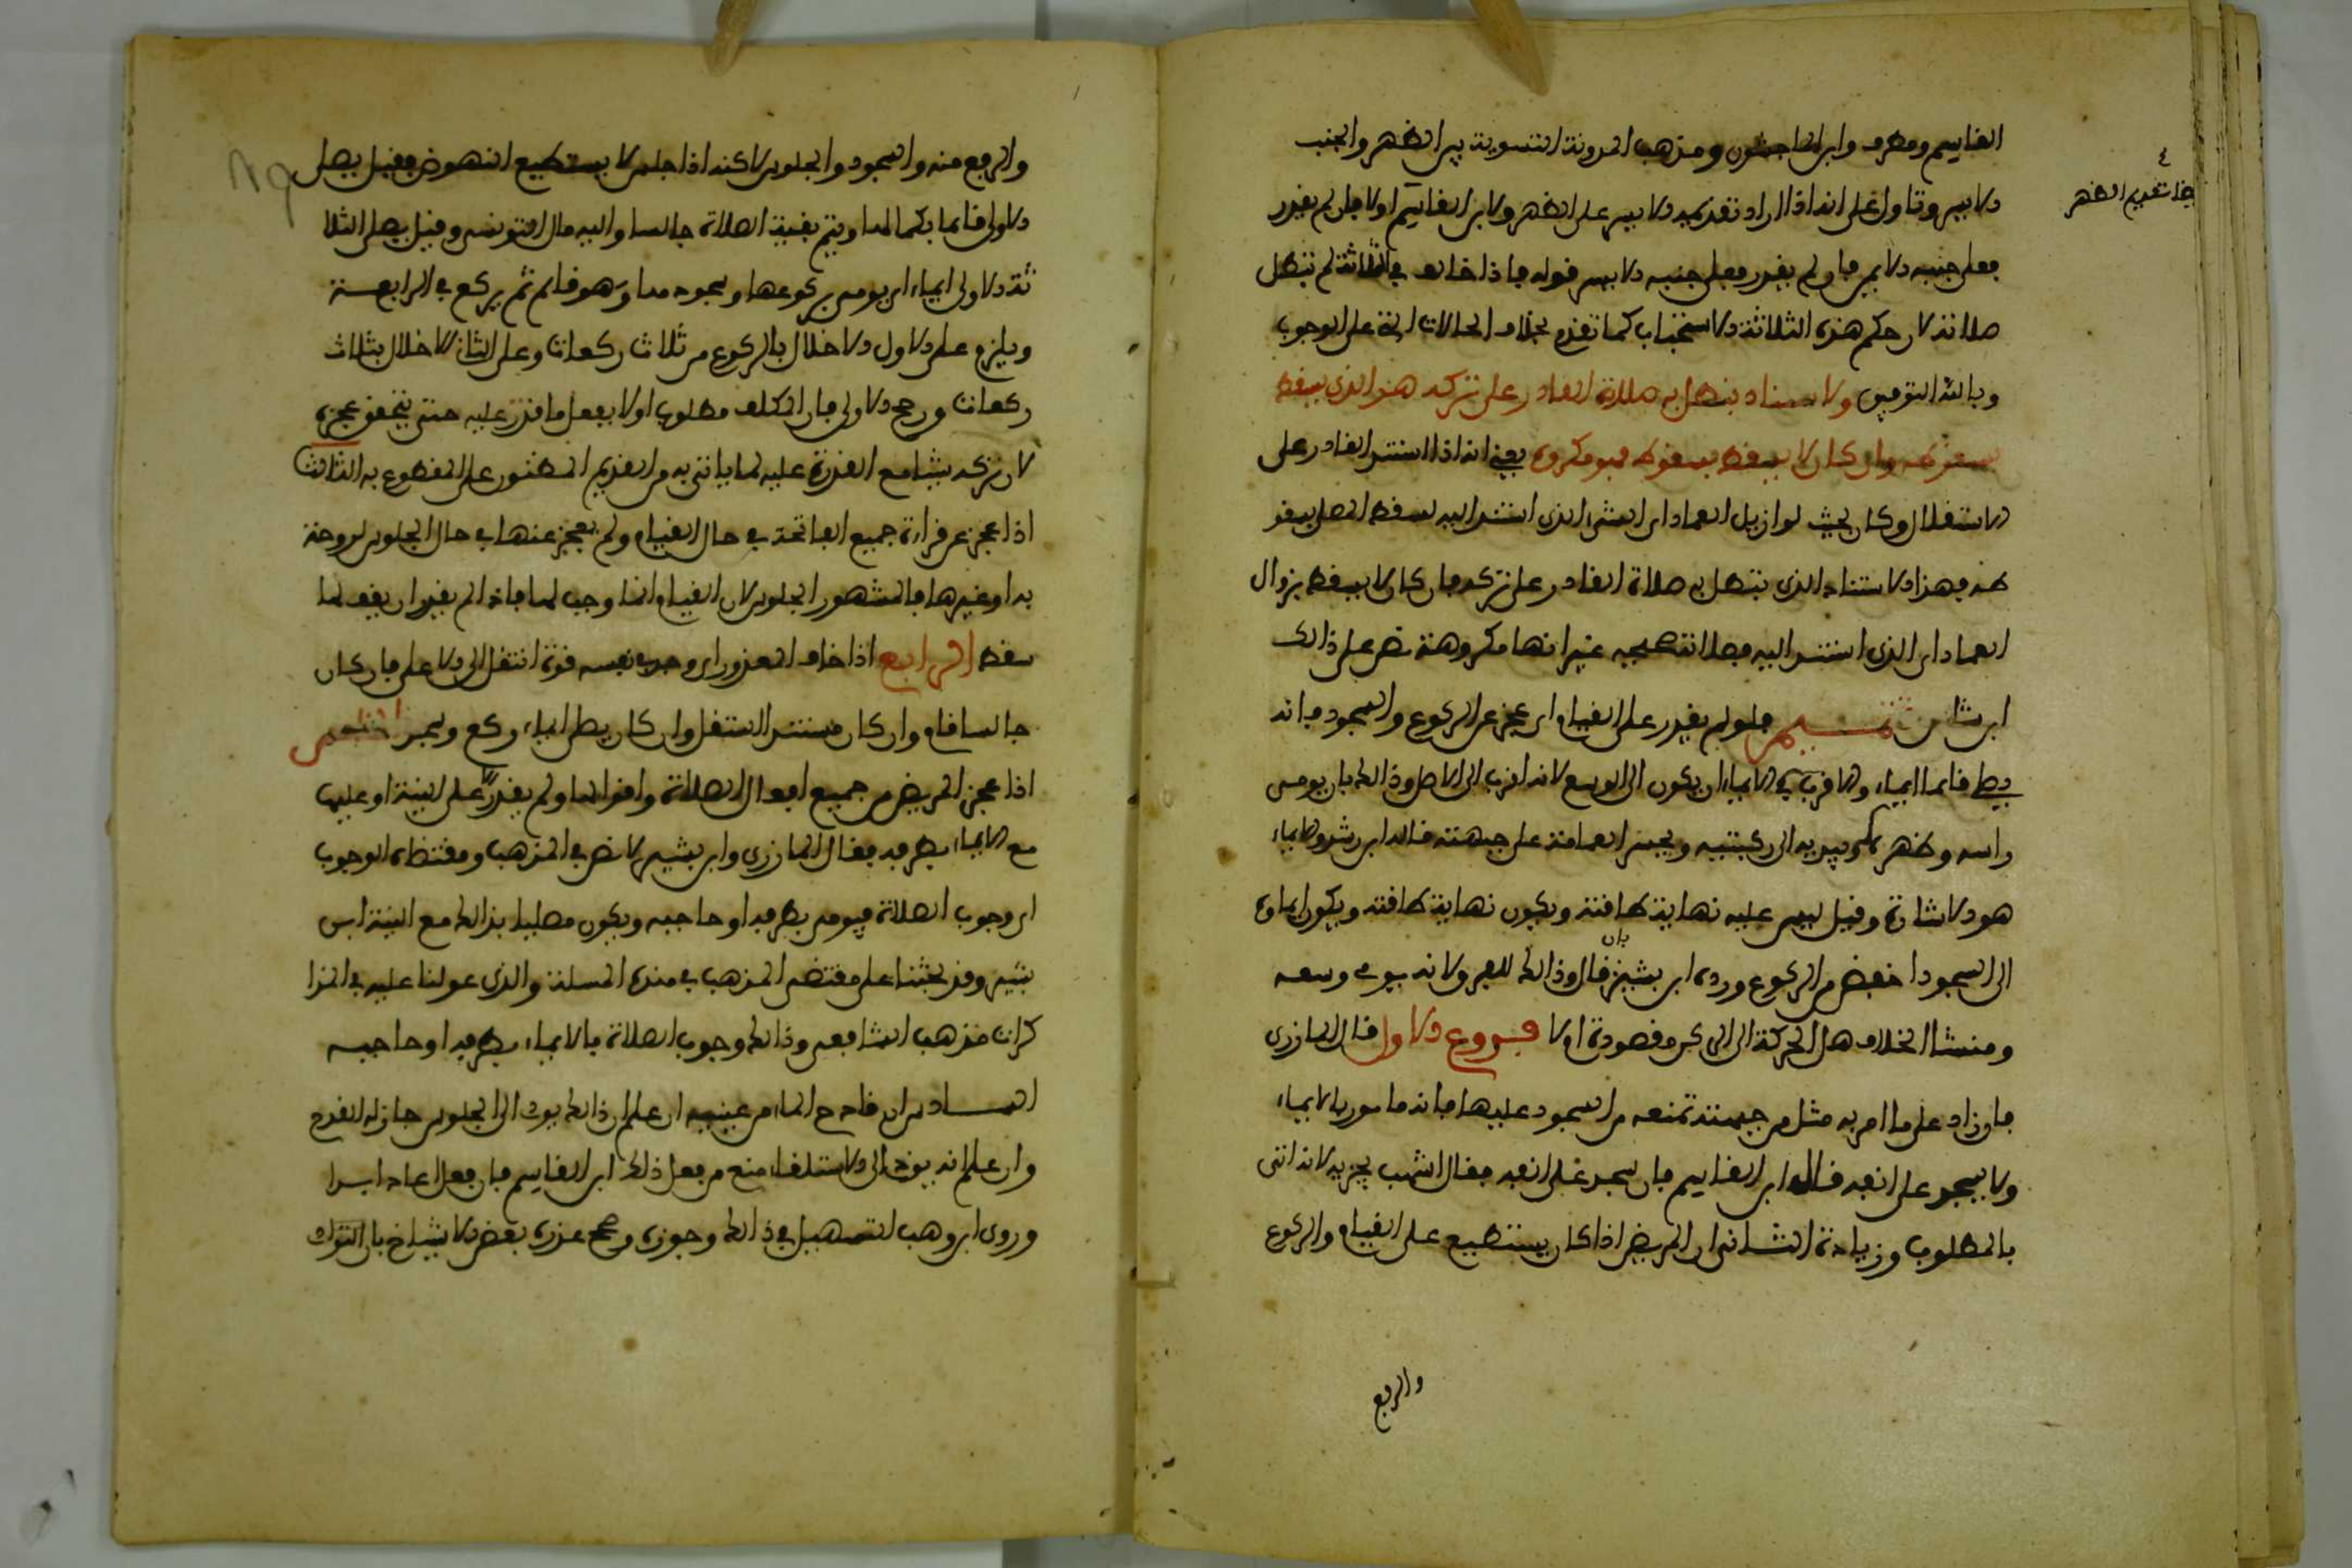 القاسم ومطرف وابن الماجشون ومذهب المدونة التسوية بين الظهر والجنب
الايسر وتاول على انه اذا اراد تقديم الايسر على الظهر ولابن القاسم اولا فان لم يقدر
فعلى جنبه الايمن فان لم يقدر فعلى جنبه الايسر قوله فاذا خالف في الثلاثة لم تبطل
صلاته لان حكم هذه الثلاثة الاستحباب كما تقدم بخلاف الحالات
على الوجوب
وبالله التوفيق والاستناد يبطل به صلاة القادر على تركه هذا الذي يسقط
بسقوطه وان كان لا يسقط بسقوطه فمكروه يعني انه اذا استند القادر على
الاستقلال وكان بحيث لو ازيل العماد اي الشيء الذي استند اليه لسقط المصلي بسقو
طه فهذا الاستناد الذي تبطل به صلاة القادر على تركه فان كان لا يسقط بزوال
العماد اي الذي استند اليه فصلاته صحيحة غير انها مكروهة نص على ذالك
ابن شاس تتميم فلو لم يقدر على القيام اي عجز عن الركوع والسجود فانه
يصلي قائما ايماء والاقرب في الايماء ان يكون الى الوسع لانه اقرب الى الاصل وذالك بان يومي
راسه وظهره ويديه الى ركبتيه ويحسر العمامة على جبهته قاله ابن رشد والايماء
هو الاشارة وقيل ليس عليه نهاية طاقته ويكون نهاية طاقته ويكون ايماؤه
الى السجود اخفض من الركوع ورده ابن بشير بان قال وذالك للفرق لانه يومي وسعه
ومنشا الخلاف هل الحركة الى الركن مقصودة ام لا فروع الاول قال المازري
فان زاد على ما امر به مثل من جبهته تمنعه من السجود عليها فانه مامور بالايماء
ولا يسجد على انفه قاله ابن القاسم فان سجد على انفه فقال اشهب يجزيه لانه اتى
بالمطلوب وزيادة الثاني ان المريض اذا كان يستطيع على القيام والركوع
والرفع
تقديم الظهر
والرفع منه والسجود والجلوس لاكنه اذا جلس لا يستطيع النهوض فقيل يصلي
الاولى قائما بكمالها ويتم بقية الصلاة جالسا واليه مال التونسي وقيل يصلي الثلا
ثة الاولى ايماء اي يومي بركوعها وسجودها وهو قائم ثم يركع في الرابعة
ويلزم على الاول الاخلال بالركوع من ثلاث ركعات وعلى الثاني الاخلال بثلاث
ركعات ورجح الاولى فان المكلف مطلوب اولا بفعل ما قدر عليه حتى يتحقق عجزه
لان تركه شيئا مع القدرة عليه لما ياتي به من التقديم المظنون على المقطوع به الثالث
اذا عجز عن قراءة جميع الفاتحة في حال القيام ولم يعجز عنها في حال الجلوس لدوخة
به او غيرها فالمشهور الجلوس لان القيام انما وجب لها فاذا لم يقدر ان يقف لها
سقط الرابع اذا خاف المعذور اي وجد في نفسه قوة انتقل الى الاعلى فان كان
جالسا قام وان كان مستندا استقل وان كان يصلي ايماء ركع وسجد الخامس
اذا عجز المريض عن جميع افعال الصلاة واقوالها ولم يقدر الا على النية او عليها
مع الايماء بطرفه فقال المازري وابن بشير لا نص في المذهب ومقتضاه الوجوب
اي وجوب الصلاة فيومي بطرفه او حاجبه ويكون مصليا بذالك مع النية ابن
بشير وقد بحثنا على مقتضى المذهب في هذه المسئلة والذي عولنا عليه في المذا
كرات مذهب الشافعي وذالك وجوب الصلاة بالايماء بطرفه او حاجبه
السادس ان قادح الماء من عينيه ان علم ان ذالك يؤد الى الجلوس جاز له القدح
وان علم انه يؤد الى الاستلقاء منع من فعل ذالك ابن القاسم فان فعل اعاد ابدا
وروى ابن وهب التسهيل في ذالك وجوزه وصحح عذره بعض الاشياخ بان التداو